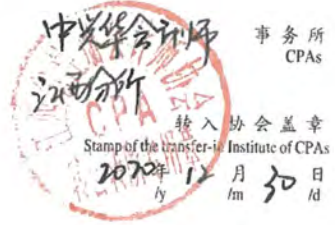 中兴华会计师 事务所
江西分所 CPAs
CPA
转入协会盖章
Stamp of the transfer-in Institute of CPAs
2020年 12月 30日
/y /m /d